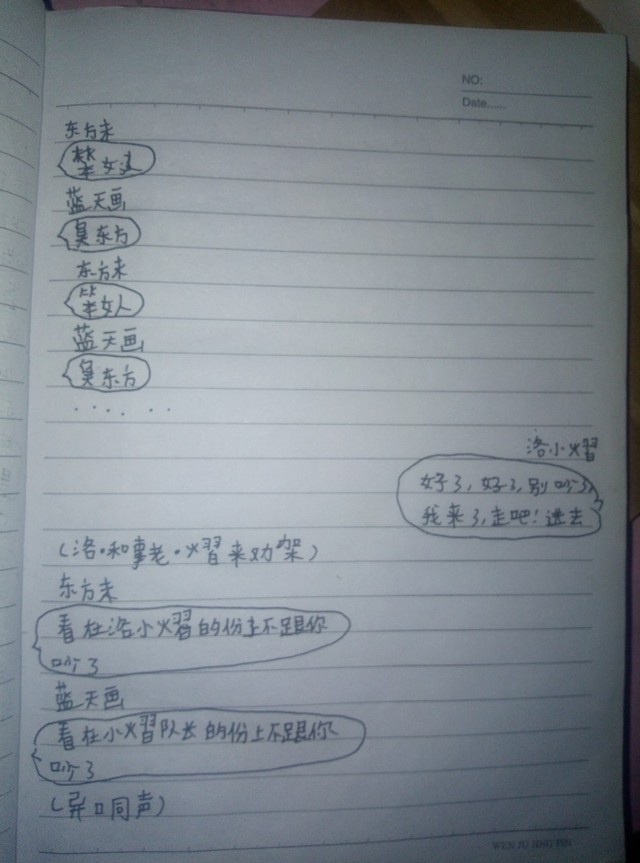 NO:
Date......
东方末
笨女
蓝天画
臭东方
东方末
笨女人
蓝天画
臭东方
......
洛小熠
好了,好了,别吵了,
我来了,走吧!进去
(洛·和事老·熠来劝架)
东方末
看在洛小熠的份上不跟你
吵了
蓝天画
看在小熠队长的份上不跟你
吵了
(异口同声)
WEN JU JING PIN